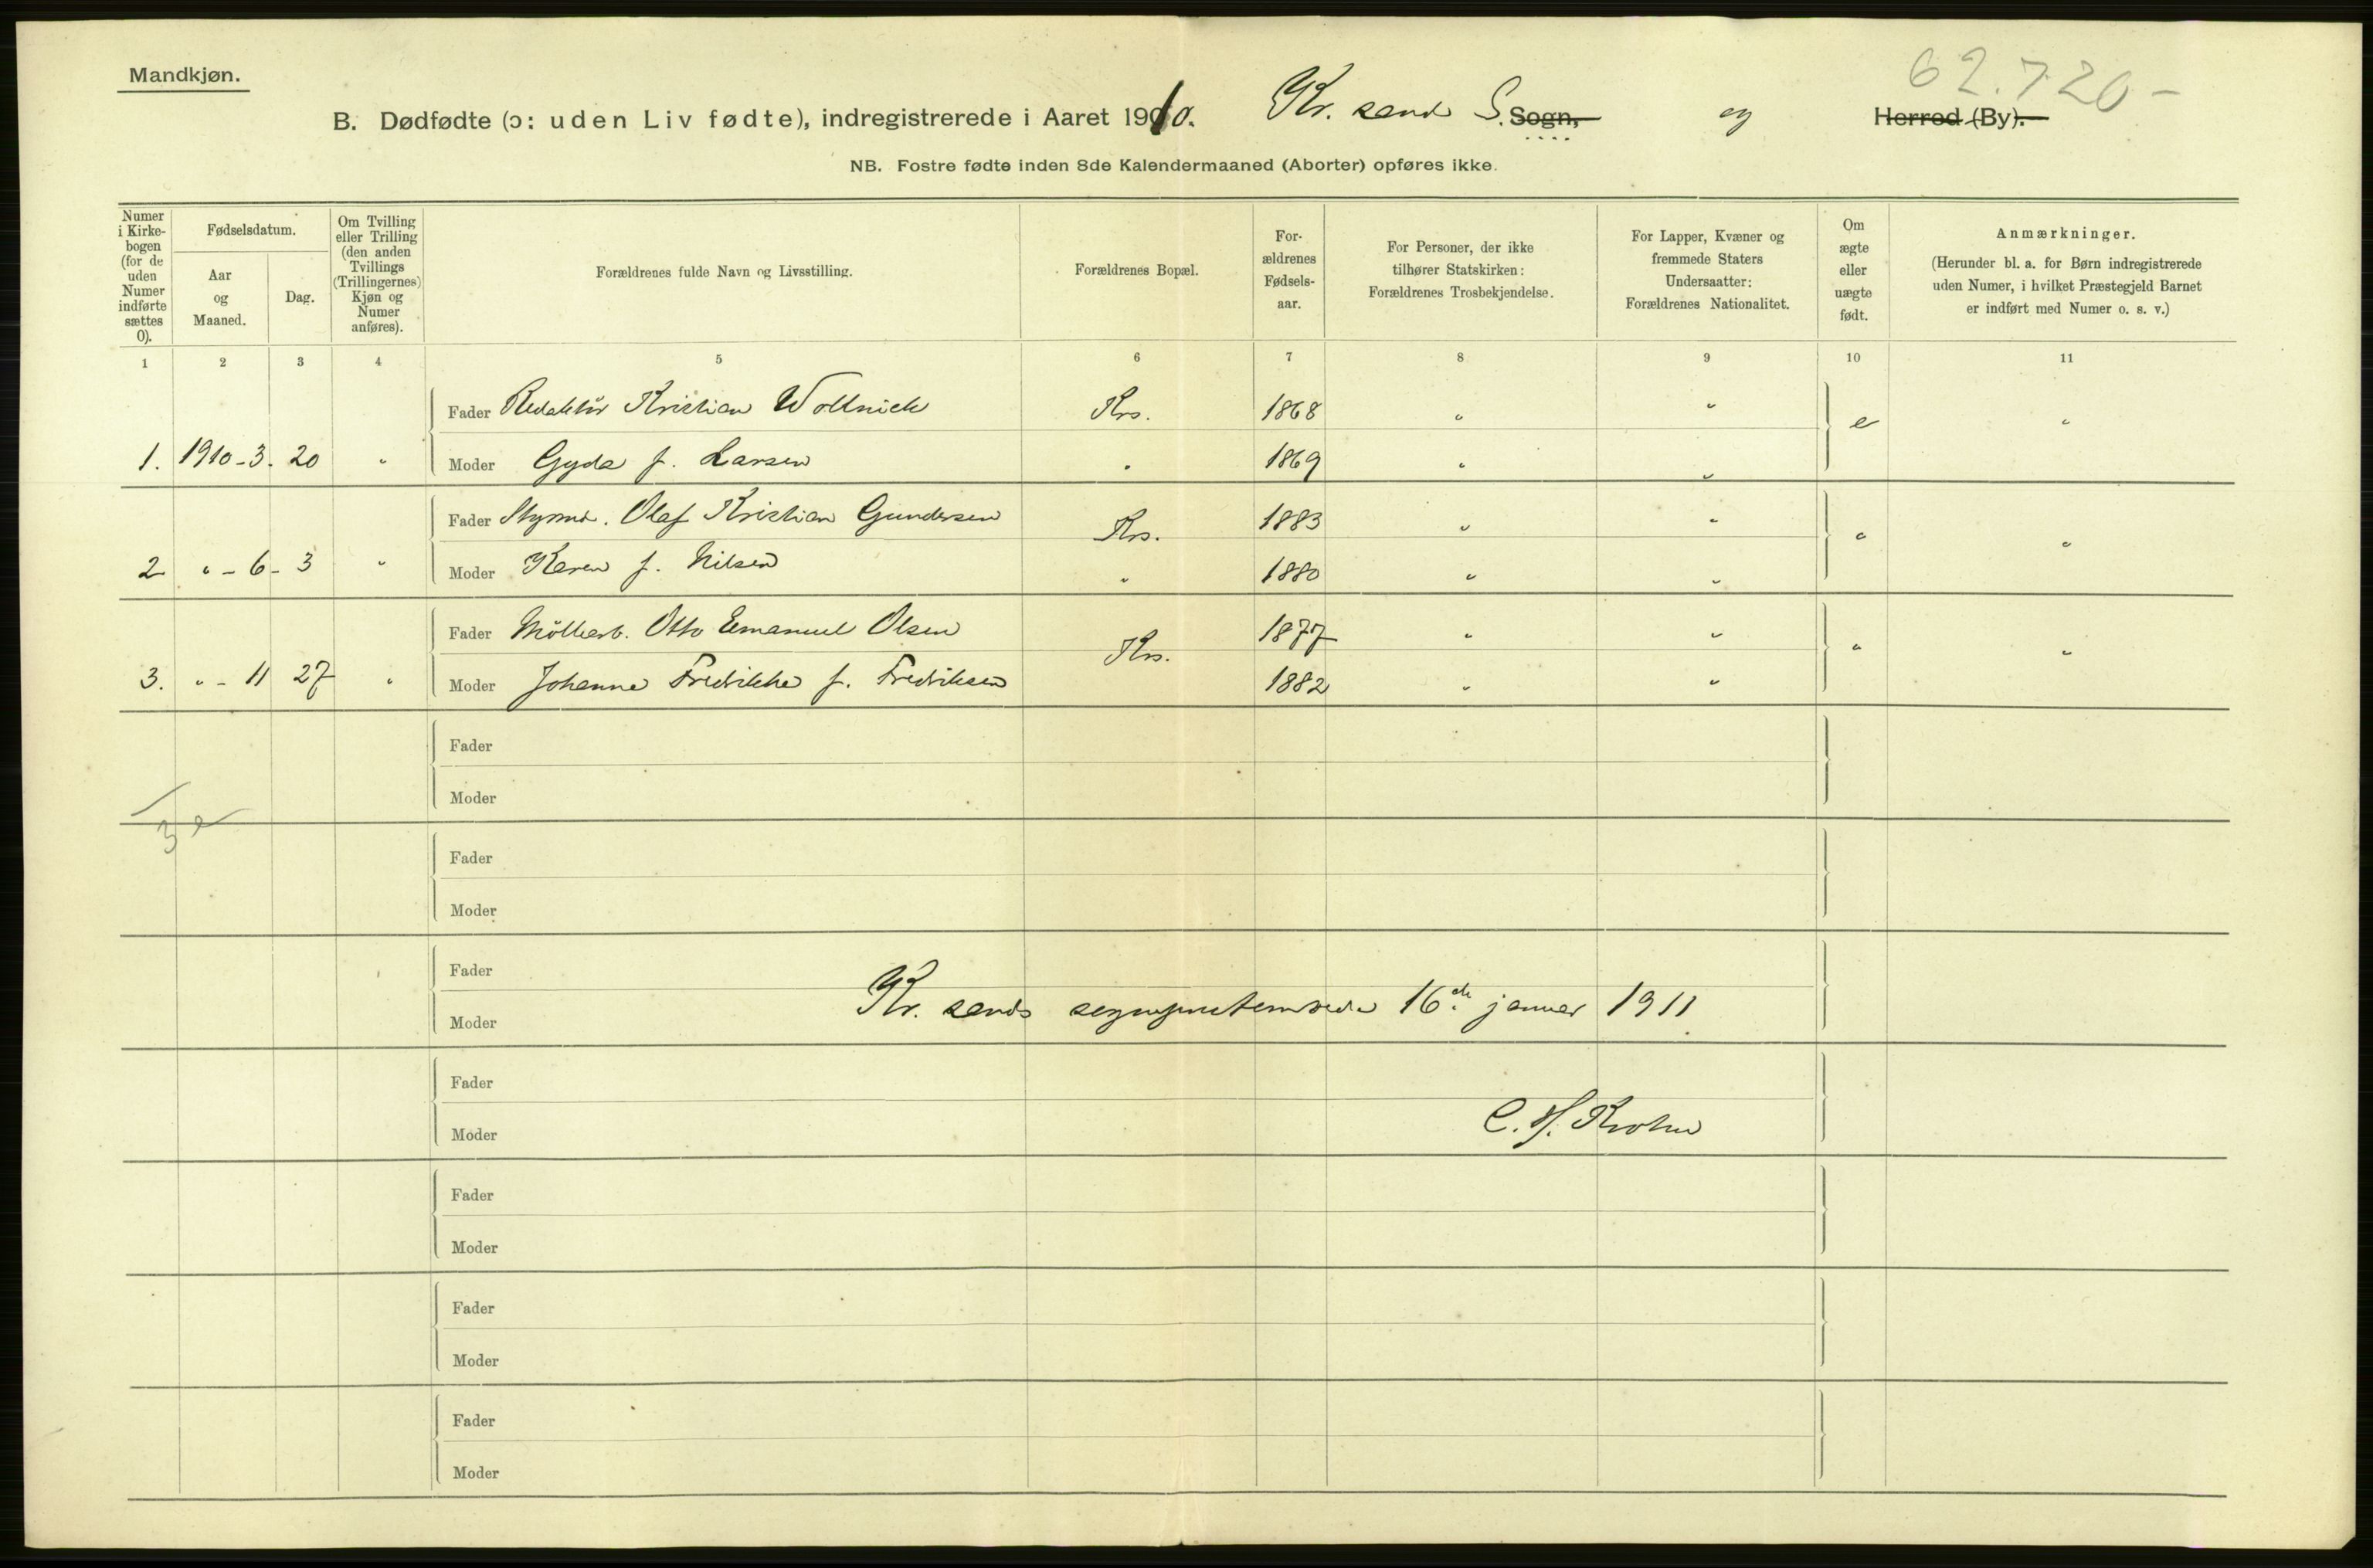 Mandkjøn.
62.720-
B. Dødfødte (ɔ: uden Liv fødte), indregistrerede i Aaret 1910. Kr.sand S. Sogn, og Herred (By).
NB. Fostre fødte inden 8de Kalendermaaned (Aborter) opføres ikke.
Numer i Kirkebogen (for de uden Numer indførte sættes 0).
Fødselsdatum.
Aar og Maaned.
Dag.
Om Tvilling eller Trilling (den anden Tvillings (Trillingernes) Kjøn og Numer anføres).
Forældrenes fulde Navn og Livsstilling.
Forældrenes Bopæl.
Forældrenes Fødselsaar.
For Personer, der ikke tilhører Statskirken: Forældrenes Trosbekjendelse.
For Lapper, Kvæner og fremmede Staters Undersaatter: Forældrenes Nationalitet.
Om ægte eller uægte født.
Anmærkninger.
(Herunder bl. a. for Børn indregistrerede uden Numer, i hvilket Præstegjeld Barnet er indført med Numer o. s. v.)
1 2 3 4 5 6 7 8 9 10 11
Fader Redaktör Kristian Wollnick Krs. 1868 " " e "
1. 1910-3. 20 " Moder Gyda f. Larsen " 1869 " "
Fader Styrmd. Olaf Kristian Gundersen Krs. 1883 " " " "
2 " - 6 - 3 " Moder Karen f. Nilsen " 1880 " "
Fader Möllearb. Otto Emanuel Olsen Krs. 1877 " " " "
3. " - 11 27 " Moder Johanne Fredrikke f. Fredriksen 1882 " "
Fader
Moder
3 e
Fader
Moder
Fader
Moder Kr.sands sogneprestembede 16de januar 1911
Fader
Moder C. H. Krohn
Fader
Moder
Fader
Moder
Fader
Moder